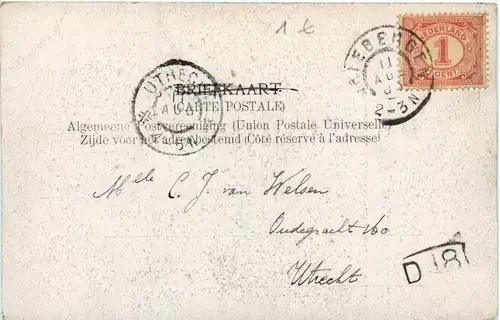 1 €
NEDERLAND
1
CENT
DRIEBERGEN
11
AUG
2-3N
UTRECHT
AUG
3N
BRIEFKAART
(CARTE POSTALE)
Algemeene Postvereeniging (Union Postale Universelle)
Zijde voor het adres bestemd (Côté réservé à l'adresse)
Melle C. J. van Welsen
Oudegracht 160
Utrecht
D 181